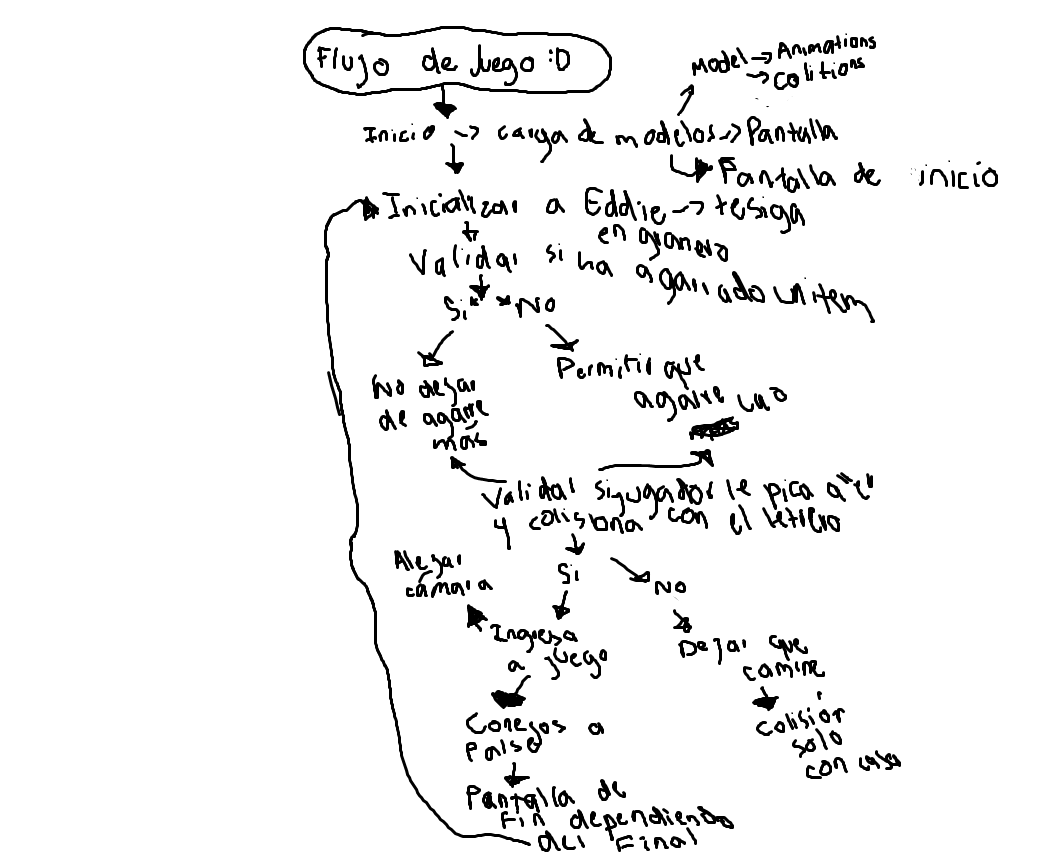 Flujo de Juego :D
Model -> Animations
-> colitions
Inicio -> carga de modelos -> Pantalla
Pantalla de inicio
Inicializar a Eddie -> tesiga
en granero
Validar si ha agarrado un item
Si No
No dejar
de agarre
más
Permitir que
agarre uno
Validar si jugador le pica a "E"
y colisiona con el letrero
Alejar
cámara
Si
No
Ingresa
a juego
Dejar que
camine
Conejos a
Colisión
solo
con casa
Pantalla de
Fin dependiendo
del Final